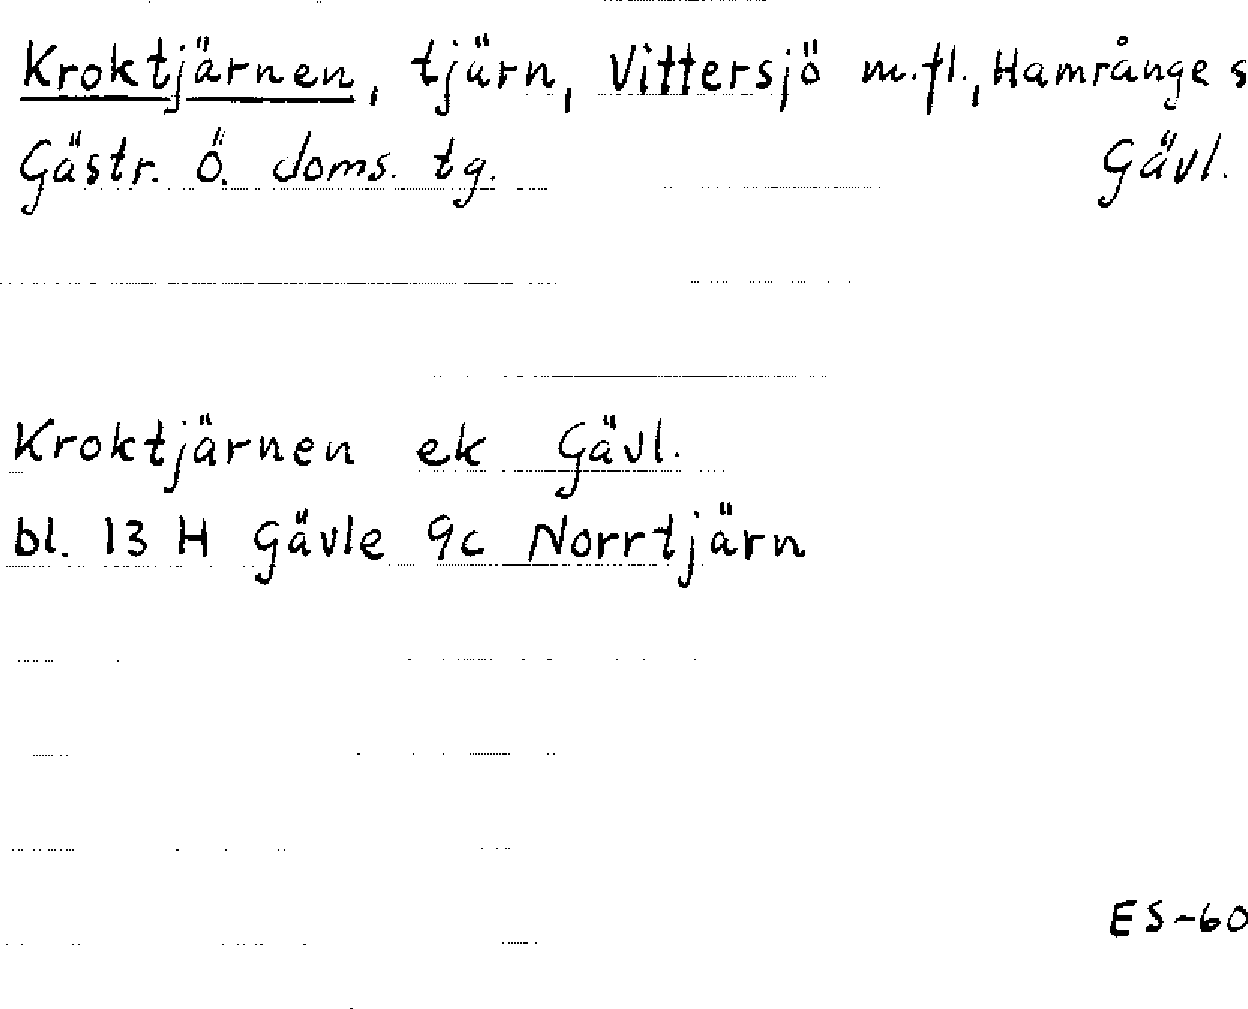 Kroktjärnen, tjärn, Vittersjö m.fl., Hamrånge s
Gästr. Ö. doms. tg. Gävl.
Kroktjärnen ek Gävl.
bl. 13 H Gävle 9c Norrtjärn
ES-60